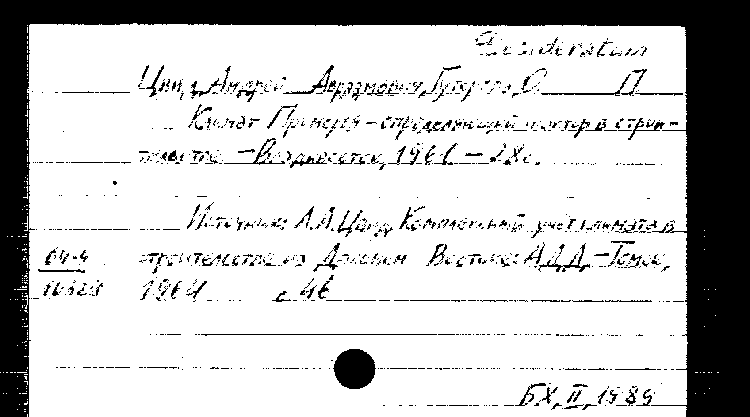 Desideratum
Цвид, Андрей Абрамович, О. П
Климат Приморья – определяющий фактор в строи-
тельстве. – Владивосток, 1961. – 28 с.
Источник: А.А. Цвид, Комплексный учет климата в
строительстве на Дальнем Востоке: А.Д.Д. – Томск,
64-4
1964 с. 46
БХ, II, 1989